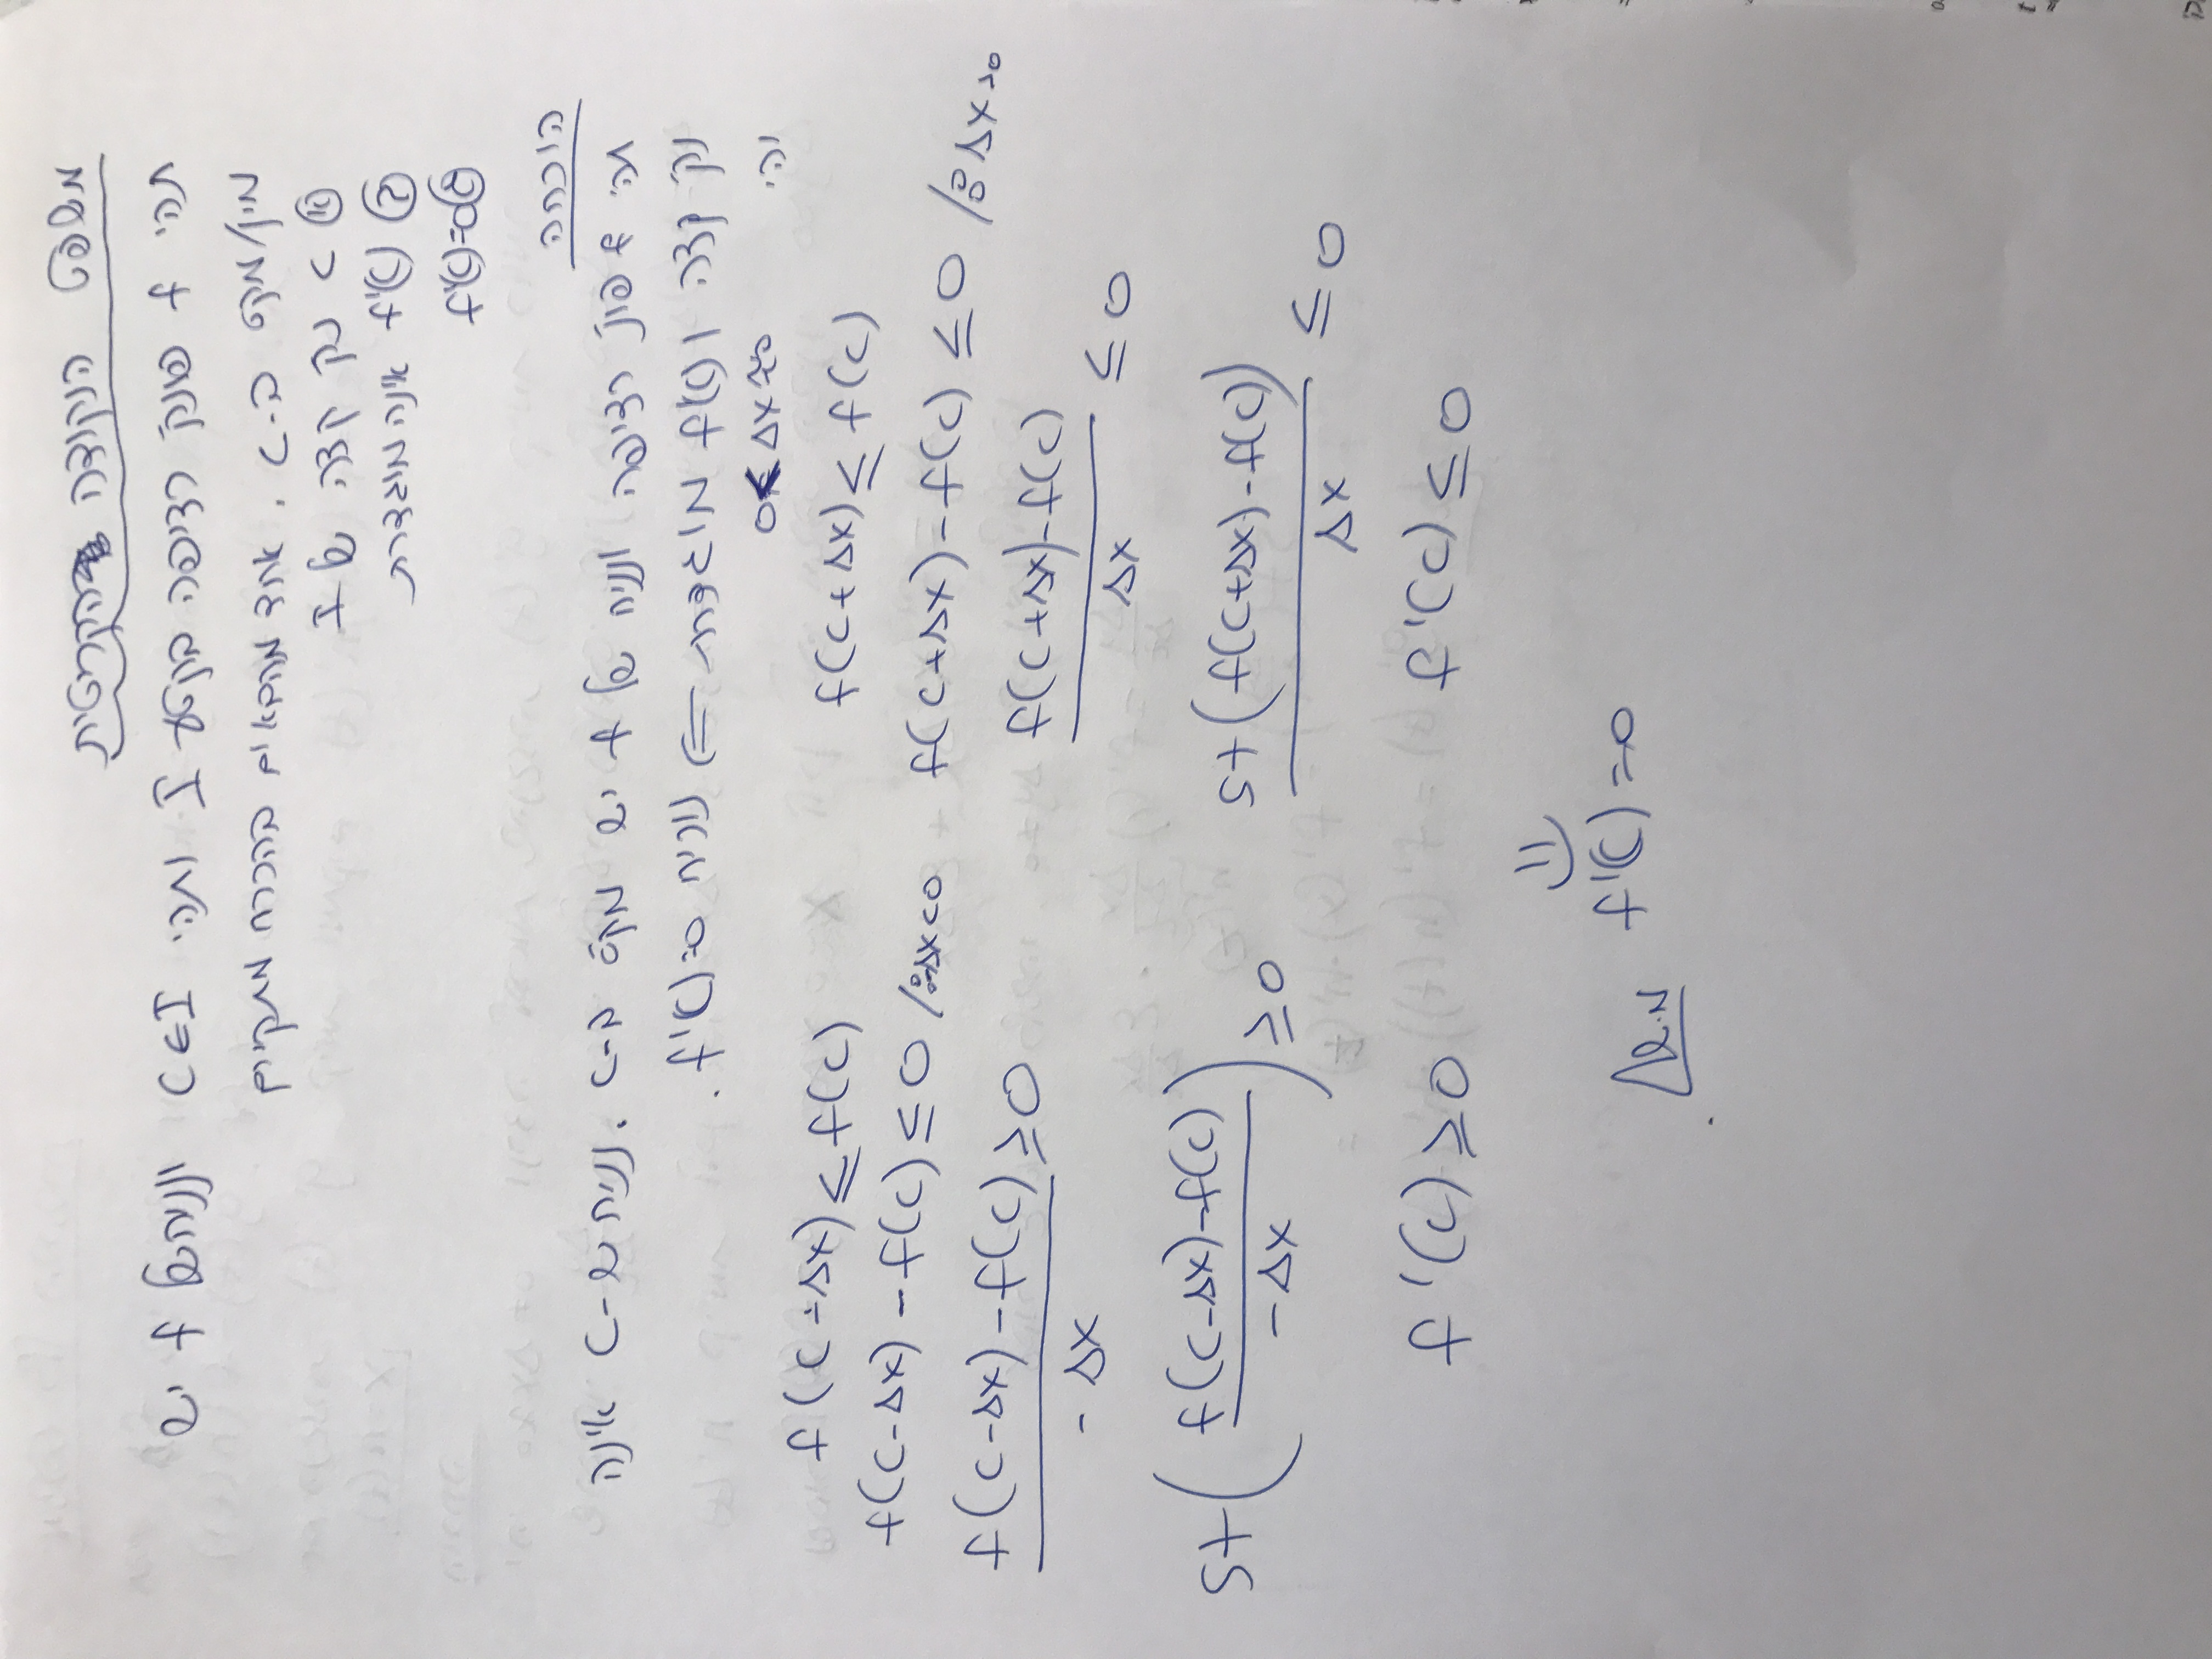 משפט הנקודה הקריטית
תהי f פונק' רציפה בקטע I ותהי c∈I ונניח של f יש
מינ/מקס ב-c. אחד מהבאים בהכרח מתקיים
א c נק קצה של I
ב f'(c) אינה מוגדרת
ג f'(c)=0
הוכחה
תהי f פונ' רציפה ונניח של f יש מקס ב-c. נניח ש-c אינה
נק' קצה ו f'(c) מוגדרת ⇐ נוכיח f'(c)=0.
יהי 0<Δx≈0
f(c+Δx)≤f(c)
f(c+Δx)-f(c)≤0 /:Δx>0
(f(c+Δx)-f(c))/Δx ≤0
st(f(c+Δx)-f(c))/Δx ≤0
f'(c)≤0
f(c-Δx)≤f(c)
f(c-Δx)-f(c)≤0 /:-Δx<0
(f(c-Δx)-f(c))/-Δx ≥0
st((f(c-Δx)-f(c))/-Δx) ≥0
f'(c)≥0
⇓
f'(c)=0
מ.ש.ל